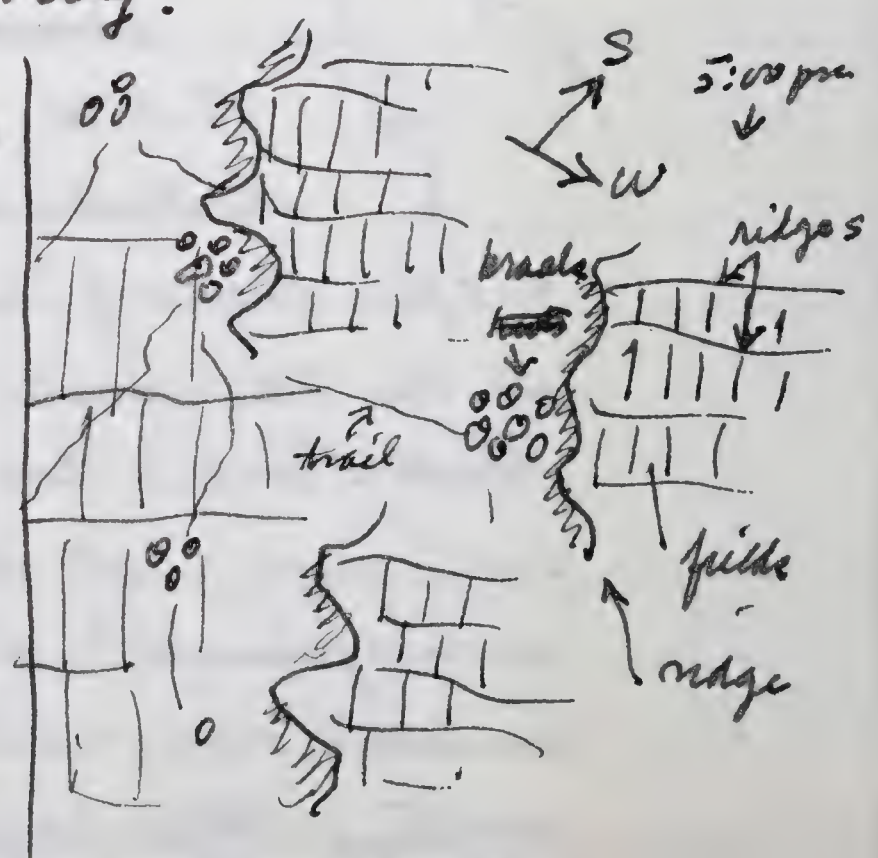 S
5:00 pm
W
ridges
kraals
trail
fields
ridge